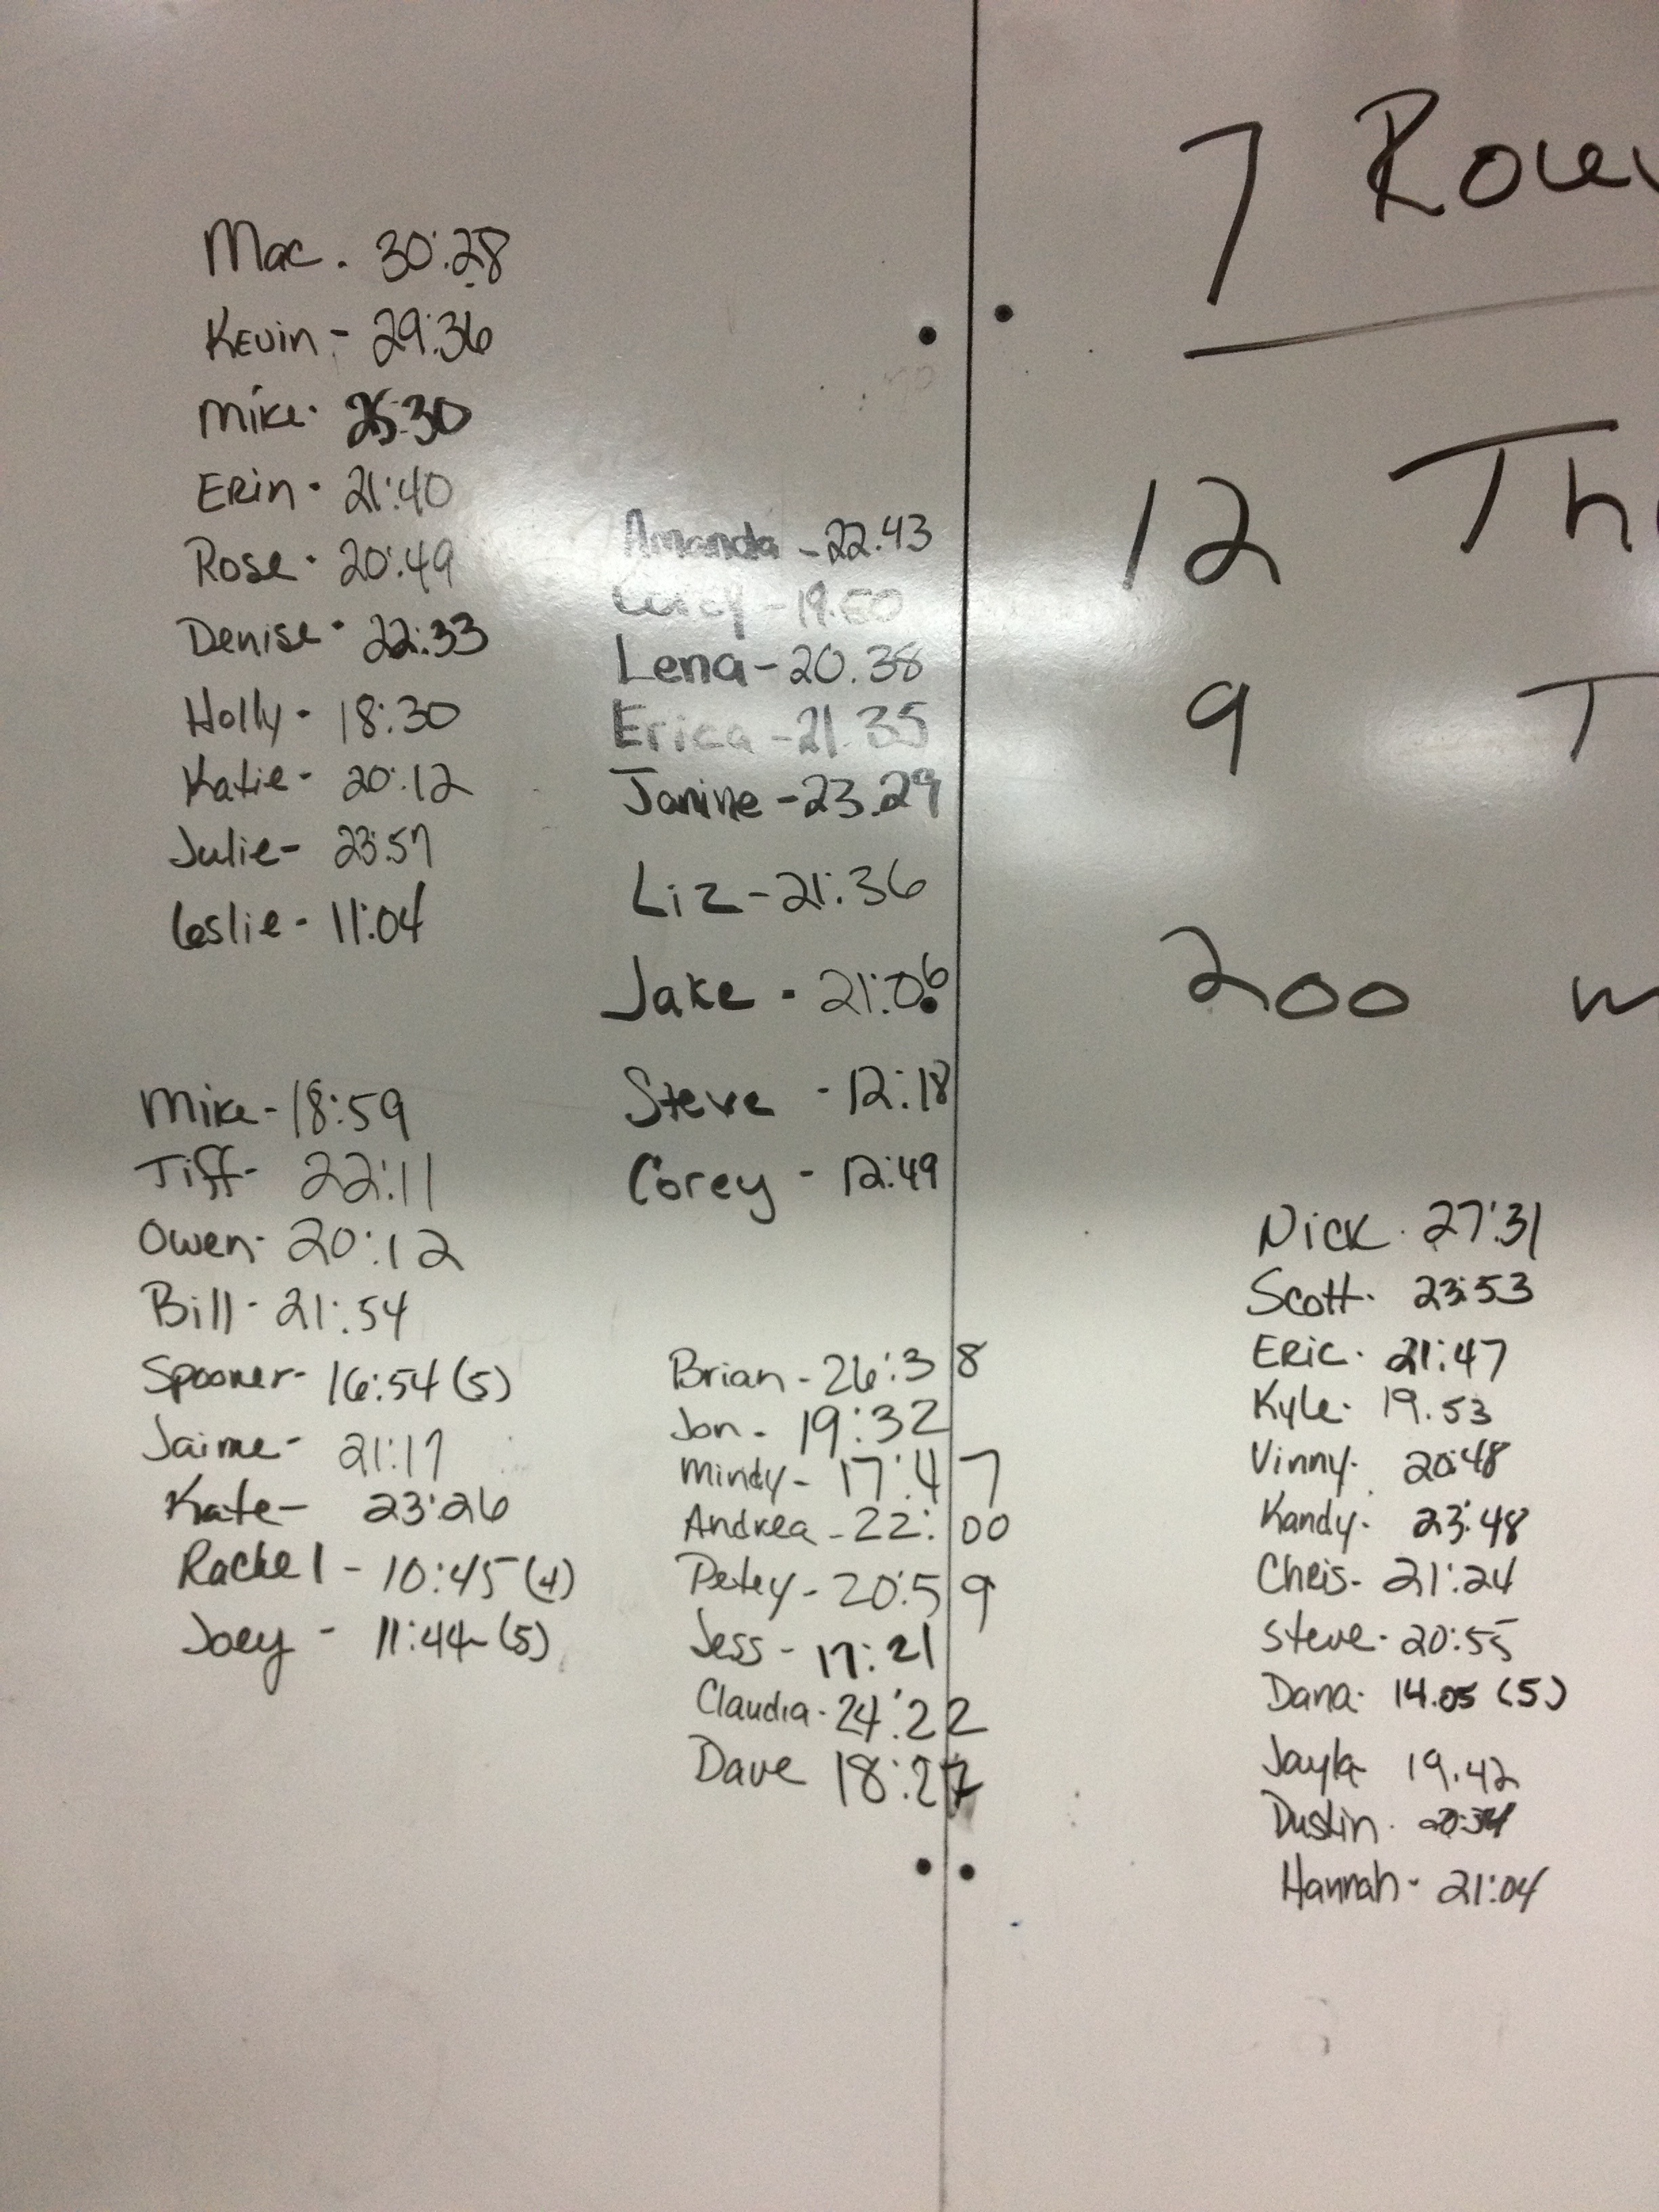 Mac. 30:28
Kevin - 29:36
Mike. 25:30
Erin. 21:40
Rose. 20:49
Denise. 22:33
Holly - 18:30
Katie - 20:12
Julie - 23:57
Leslie - 11:04
Mike - 18:59
Tiff - 22:11
Owen - 20:12
Bill - 21:54
Spooner - 16:54 (5)
Jaime - 21:17
Kate - 23:26
Rachel - 10:45 (4)
Joey - 11:44 (5)
Amanda - 22.43
Lena - 20.38
Erica - 21.35
Janine - 23.29
Liz - 21:36
Jake - 21:06
Steve - 12:18
Corey - 12:49
Brian - 26:38
Jon - 19:32
Mindy - 17:47
Andrea - 22:00
Petey - 20:59
Jess - 17:21
Claudia - 24:22
Dave 18:27
7
12
9 T
200 m
Nick. 27:31
Scott. 23:53
Eric. 21:47
Kyle. 19.53
Vinny. 20:48
Kandy. 23:48
Chris - 21:24
Steve - 20:55
Dana. 14.05 (5)
Jayla 19.42
Dustin. 20:34
Hannah - 21:04